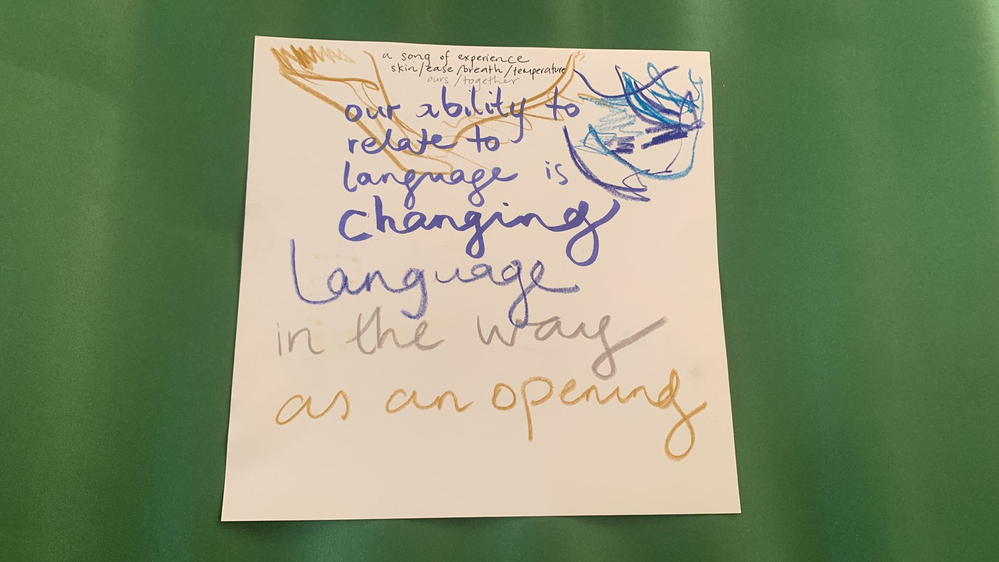 a song of experience
skin/ease/breath/temperature
ours/together
our ability to
relate to
language is
changing
Language
in the way
as an opening